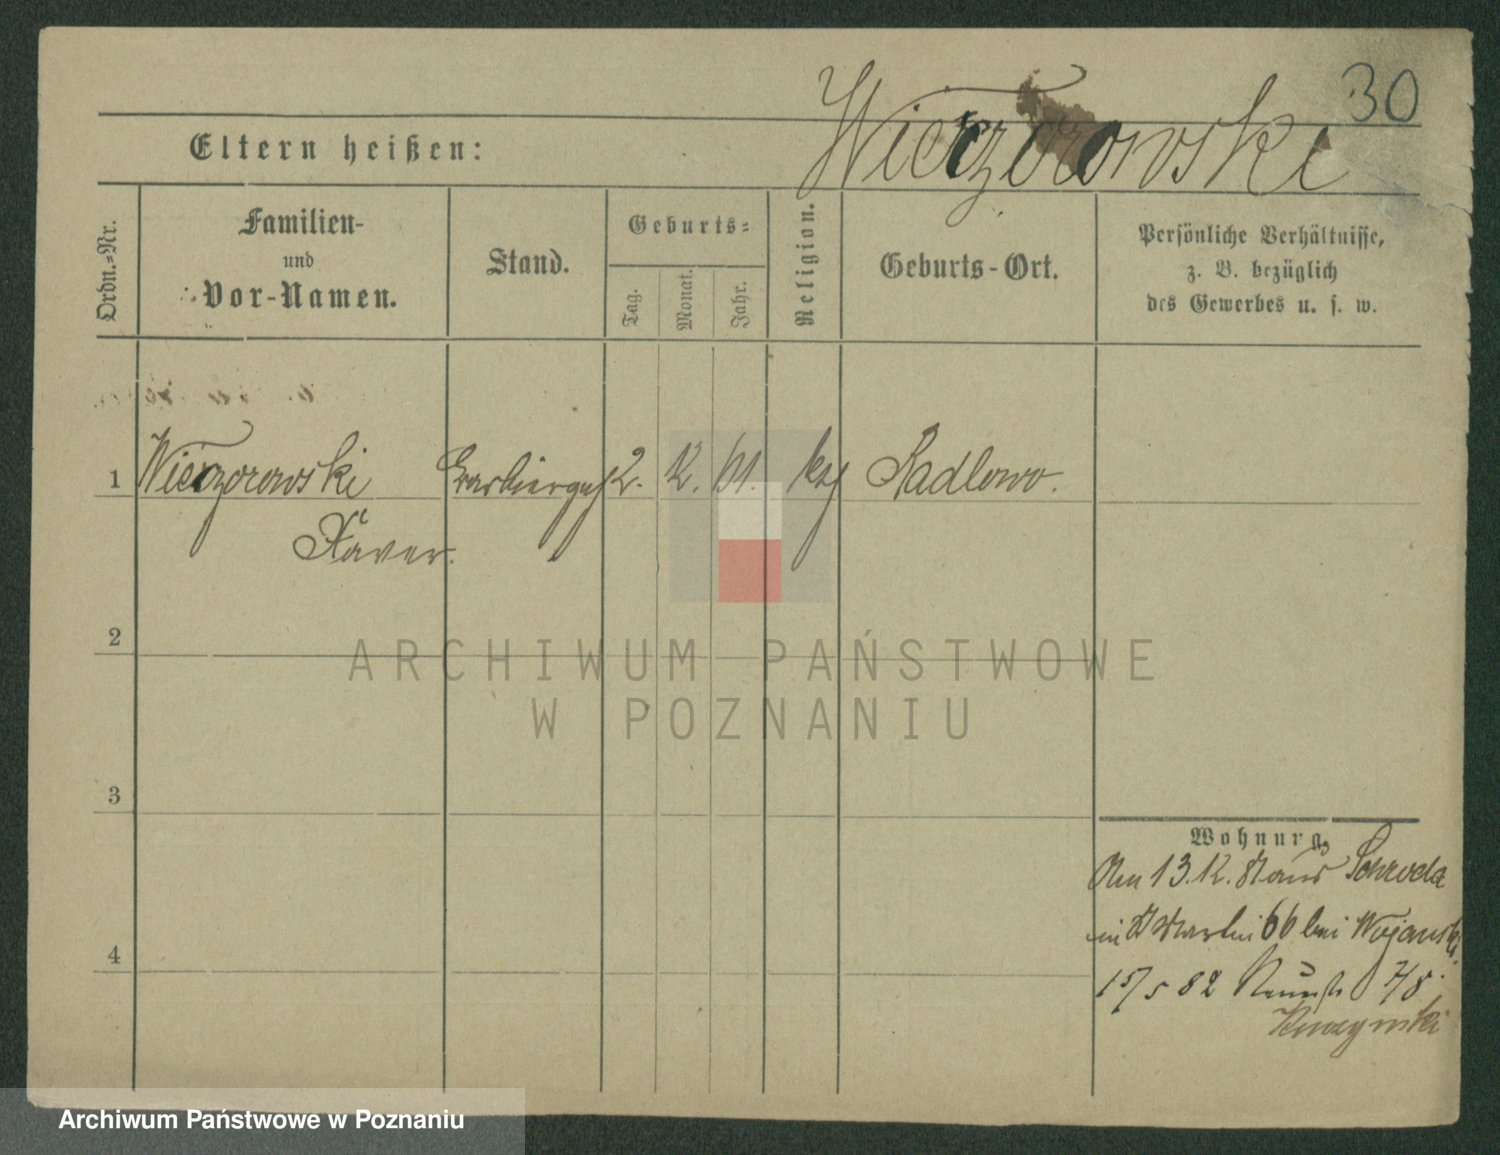 30
Wieczorowski
Eltern heißen:
Ordn.=Nr.
Familien-
und
Vor-Namen.
Stand.
Geburts=
Tag.
Monat.
Jahr.
Religion.
Geburts-Ort.
Persönliche Verhältnisse,
z. B. bezüglich
des Gewerbes u. s. w.
1 Wieczorowski 2. 12. 61. kth Radlowo.
Xaver.
2
ARCHIWUM PAŃSTWOWE
W POZNANIU
3
Wohnung.
Am 13.12. Schroda
in St Martin 66 bei
15/5 82 7/8.
4
Archiwum Państwowe w Poznaniu